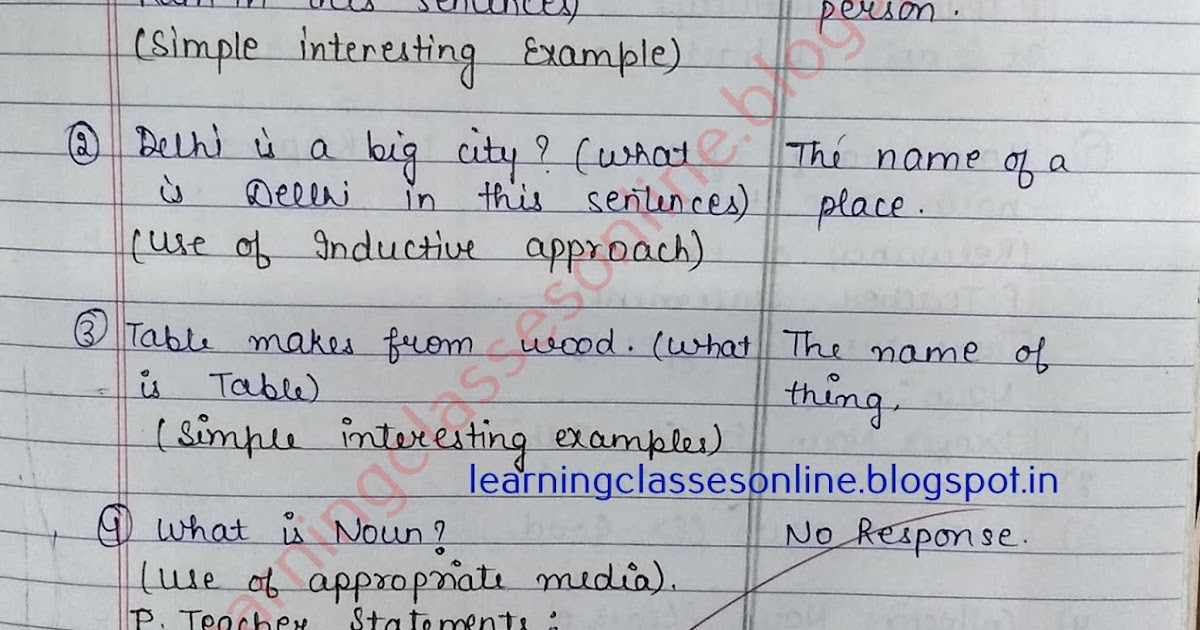 in this sentences) person.
(Simple interesting Example)
② Delhi is a big city? (what The name of a
is Delhi in this sentences) place.
(use of Inductive approach)
③ Table makes from wood. (what The name of
is Table) thing,
(Simple interesting examples)
learningclassesonline.blogspot.in
④ What is Noun? No Response.
(use of appropriate media).
P. Teacher Statements :
learningclassesonline.blog